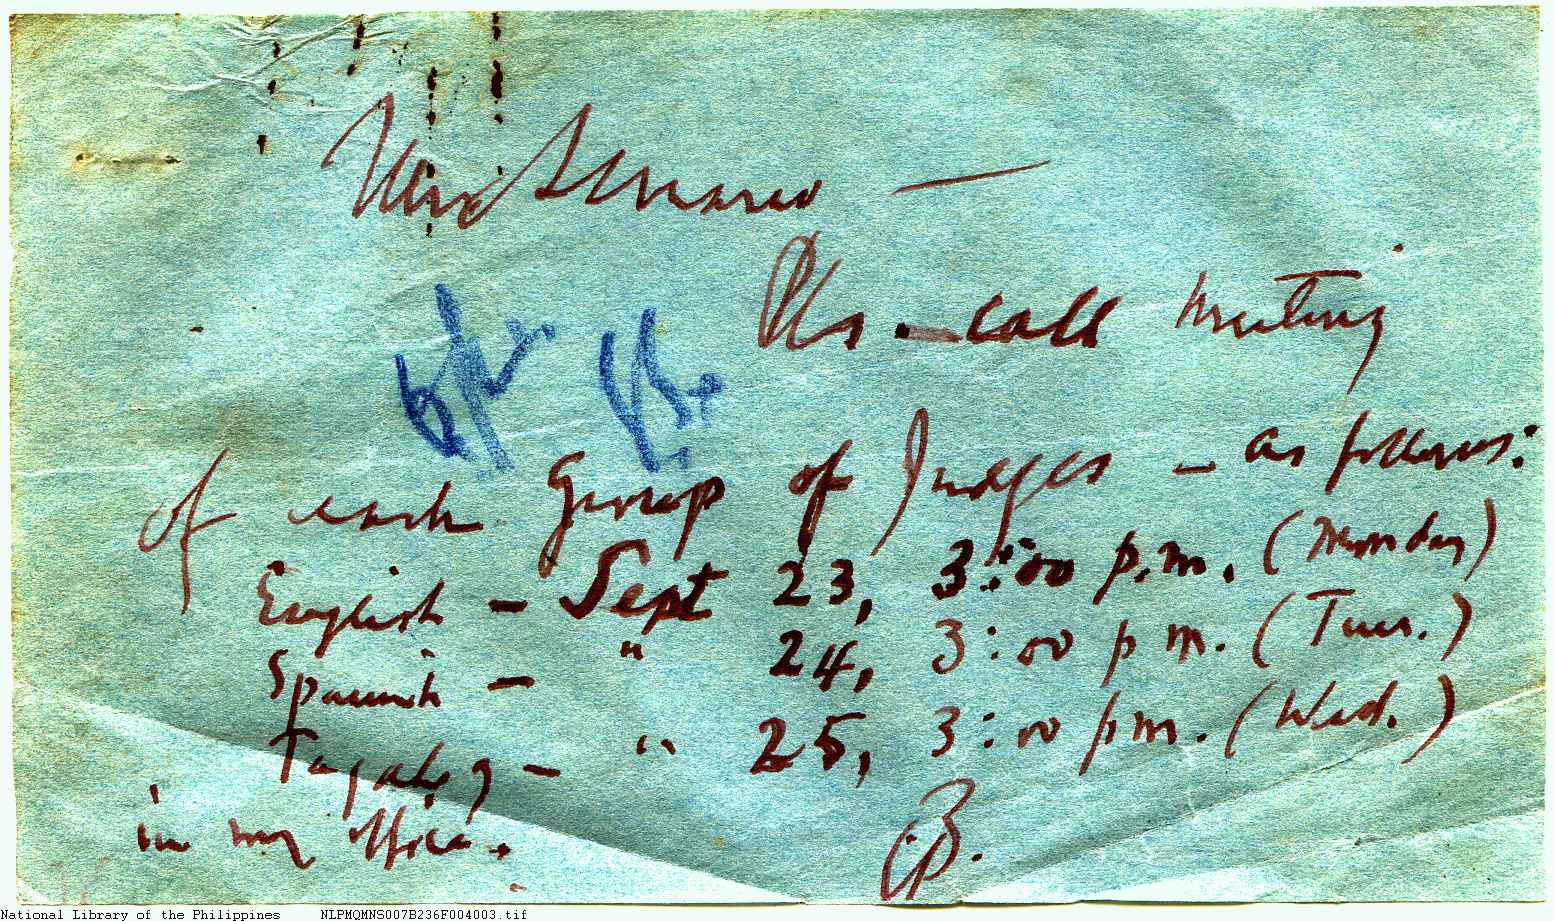 Pls. call meeting
of each Group of Judges - as follows:
English - Sept 23, 3:00 p.m. (Monday)
Spanish - " 24, 3:00 p.m. (Tues.)
Tagalog - " 25, 3:00 p.m. (Wed.)
in my office.
National Library of the Philippines NLPMQMNS007B236F004003.tif